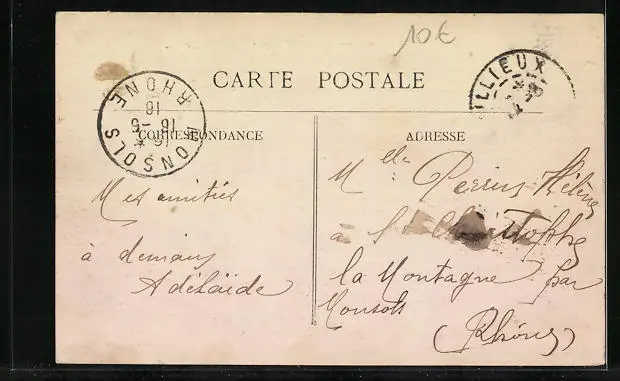 10€
CARTE POSTALE
MONSOLS
RHONE
16 -5
16
ILLIEUX
CORRESPONDANCE
ADRESSE
Mes amitiés
à demain
Adélaïde
Melle Perrin Hélène
à St Christophe
la Montagne par
Monsols
(Rhône)